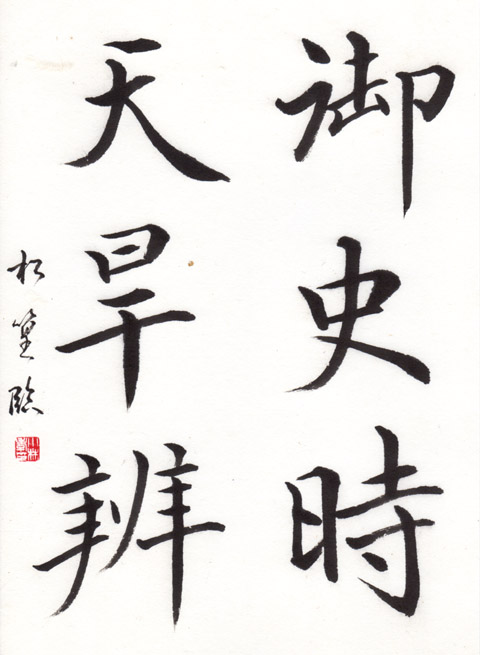 御史時
天旱辨
松篁臨